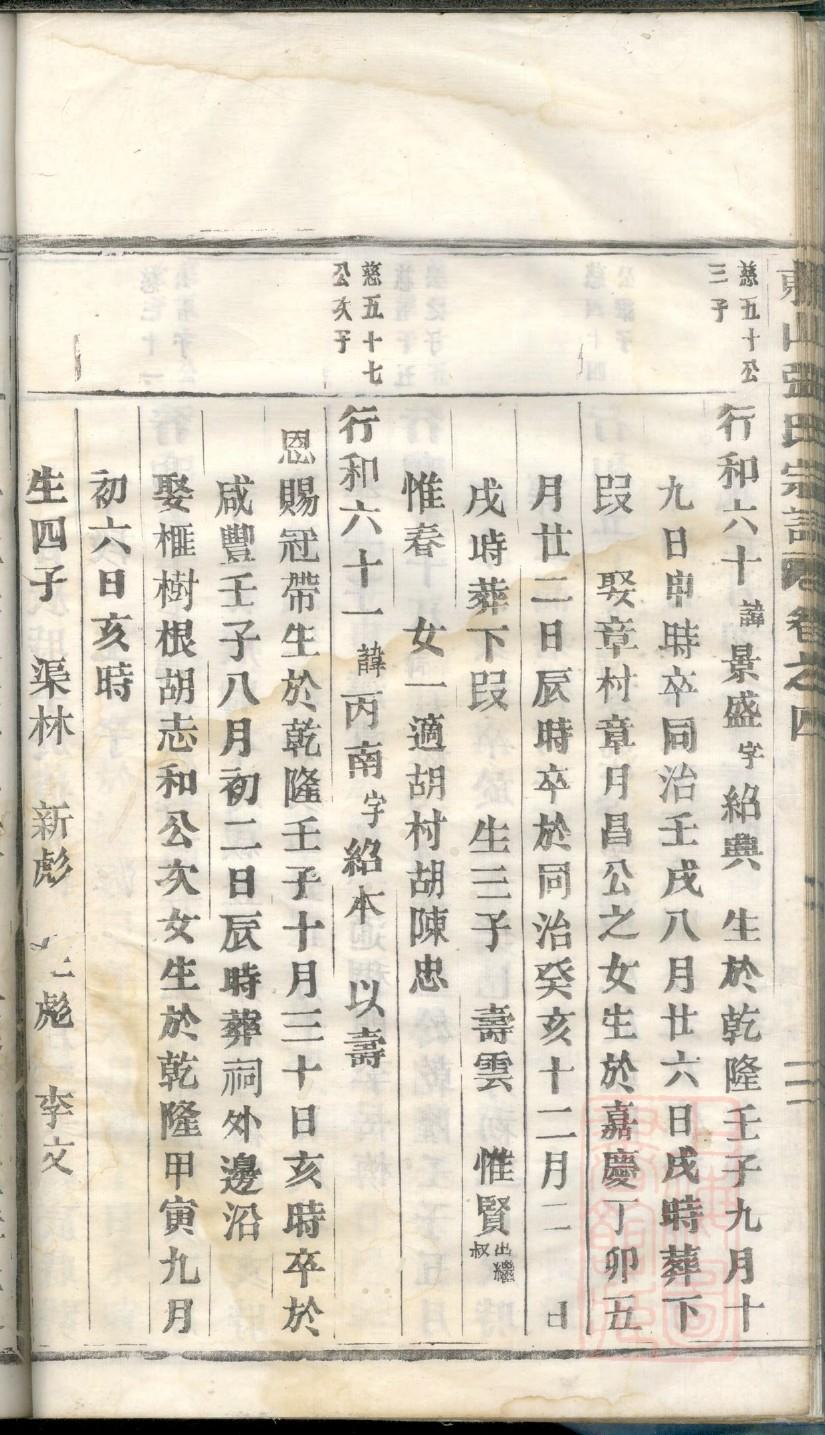 張氏宗譜 卷之四
慈五十公
三子
行和六十諱景盛字紹典 生於乾隆壬子九月十
九日申時卒同治壬戌八月廿六日戌時葬下
叚 娶章村章月昌公之女生於嘉慶丁卯五
月廿二日辰時卒於同治癸亥十二月二 日
戌時葬下叚 生三子 壽雲 惟賢出繼叔
惟春 女一適胡村胡陳忠
慈五十七
公次子
行和六十一諱丙南字紹本 以壽
恩賜冠帶生於乾隆壬子十月三十日亥時卒於
咸豐壬子八月初二日辰時葬祠外邊沿
娶榧樹根胡志和公次女生於乾隆甲寅九月
初六日亥時
生四子 渠林 新彪 彪 李文